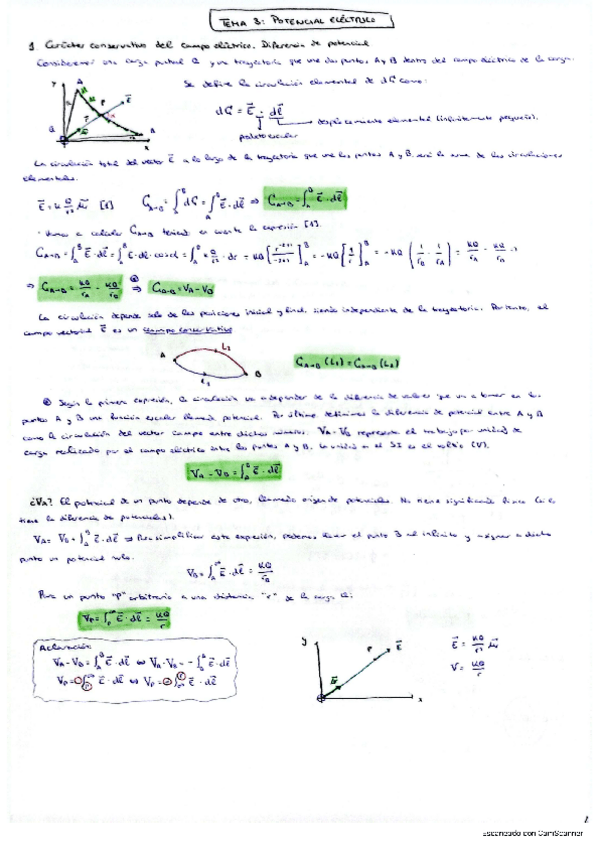 TEMA 3: POTENCIAL ELÉCTRICO
1. Carácter conservativo del campo eléctrico. Diferencia de potencial
Consideremos una carga puntual Q y una trayectoria que une dos puntos A y B dentro del campo eléctrico de la carga.
Se define la circulación elemental de dC como:
dC = E · dl → desplazamiento elemental (infinitamente pequeño).
producto escalar
La circulación total del vector E a lo largo de la trayectoria que une los puntos A y B, será la suma de las circulaciones
elementales.
E = K Q/r² u_r [1] C_A→B = ∫_A^B dC = ∫_A^B E · dl ⇒ C_A→B = ∫_A^B E · dl
Vamos a calcular C_A→B teniendo en cuenta la expresión [1].
C_A→B = ∫_A^B E · dl = ∫_A^B E · dl · cos α = ∫_A^B K Q/r² · dr = KQ [r^(-2+1)/(-2+1)]_A^B = -KQ [1/r]_A^B = -KQ (1/r_B - 1/r_A) = KQ/r_A - KQ/r_B
⇒ C_A→B = KQ/r_A - KQ/r_B ⇒ C_A→B = V_A - V_B
La circulación depende solo de las posiciones inicial y final, siendo independiente de la trayectoria. Por tanto, el
campo vectorial E es un campo conservativo
A L_2 L_1 B C_A→B (L_1) = C_A→B (L_2)
Según la primera expresión, la circulación va a depender de la diferencia de valores que va a tomar en los
puntos A y B una función escalar llamada potencial. Por último definimos la diferencia de potencial entre A y B
como la circulación del vector campo entre dichos puntos. V_A - V_B representa el trabajo por unidad de
carga realizado por el campo eléctrico entre los puntos A y B. La unidad en el SI es el voltio (V).
V_A - V_B = ∫_A^B E · dl
¿V_A? El potencial de un punto depende de otro, llamado origen de potenciales. No tiene significado físico (sí lo
tiene la diferencia de potenciales).
V_A - V_B = ∫_A^B E · dl ⇒ Para simplificar esta expresión, podemos llevar el punto B al infinito y asignar a dicho
punto un potencial nulo.
∫_A^∞ E · dl = KQ
Para un punto "P" arbitrario a una distancia "r" de la carga Q:
V_P = ∫_P^∞ E · dl = KQ/r
Aclaración
V_A - V_B = ∫_A^B E · dl ⇔ V_A - V_B = - ∫_B^A E · dl
y E P x
E = KQ/r² u_r
V = KQ/r
1
Escaneado con CamScanner